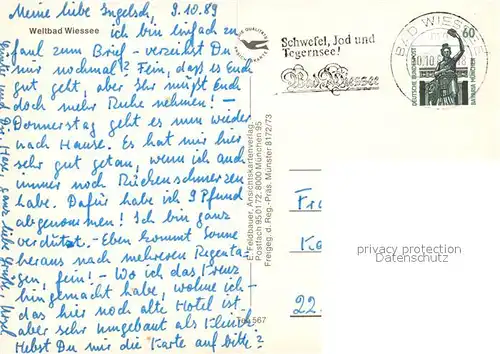 Meine liebe Engelsch, 9.10.89
Weltbad Wiessee
ich bin einfach zu
faul zum Brief - verzeihst Du
mir nochmal? Fein, dass es Euch
gut geht, aber Ihr müßt Euch
doch mehr Ruhe nehmen! -
Donnerstag geht es nun wieder
nach Hause. Es hat mir hier
sehr gut getan, wenn ich auch
immer noch Rückenschmerzen
habe. Dafür habe ich 9 Pfund
abgenommen! Ich bin ganz
verdutzt. - Eben kommt Sonne
heraus nach mehreren Regenta-
gen, fein! - Wo ich das Kreuz
hingemacht habe, wohne ich -
das hier noch alte Hotel ist
aber sehr umgebaut als Klinik!
Hebst Du mir die Karte auf bitte?
Dir, ganz liebe Grüße,
E. Feldbauer, Ansichtskartenverlag,
Postfach 950172, 8000 München 95
Freigeg. d. Reg.-Präs. Münster 8172/73
Too 567
Schwefel, Jod und
Tegernsee!
Bad Wiessee
BAD WIESSEE
10.10
60
DEUTSCHE BUNDESPOST
BAVARIA MÜNCHEN
Fr
Ka
22
privacy protection
Datenschutz